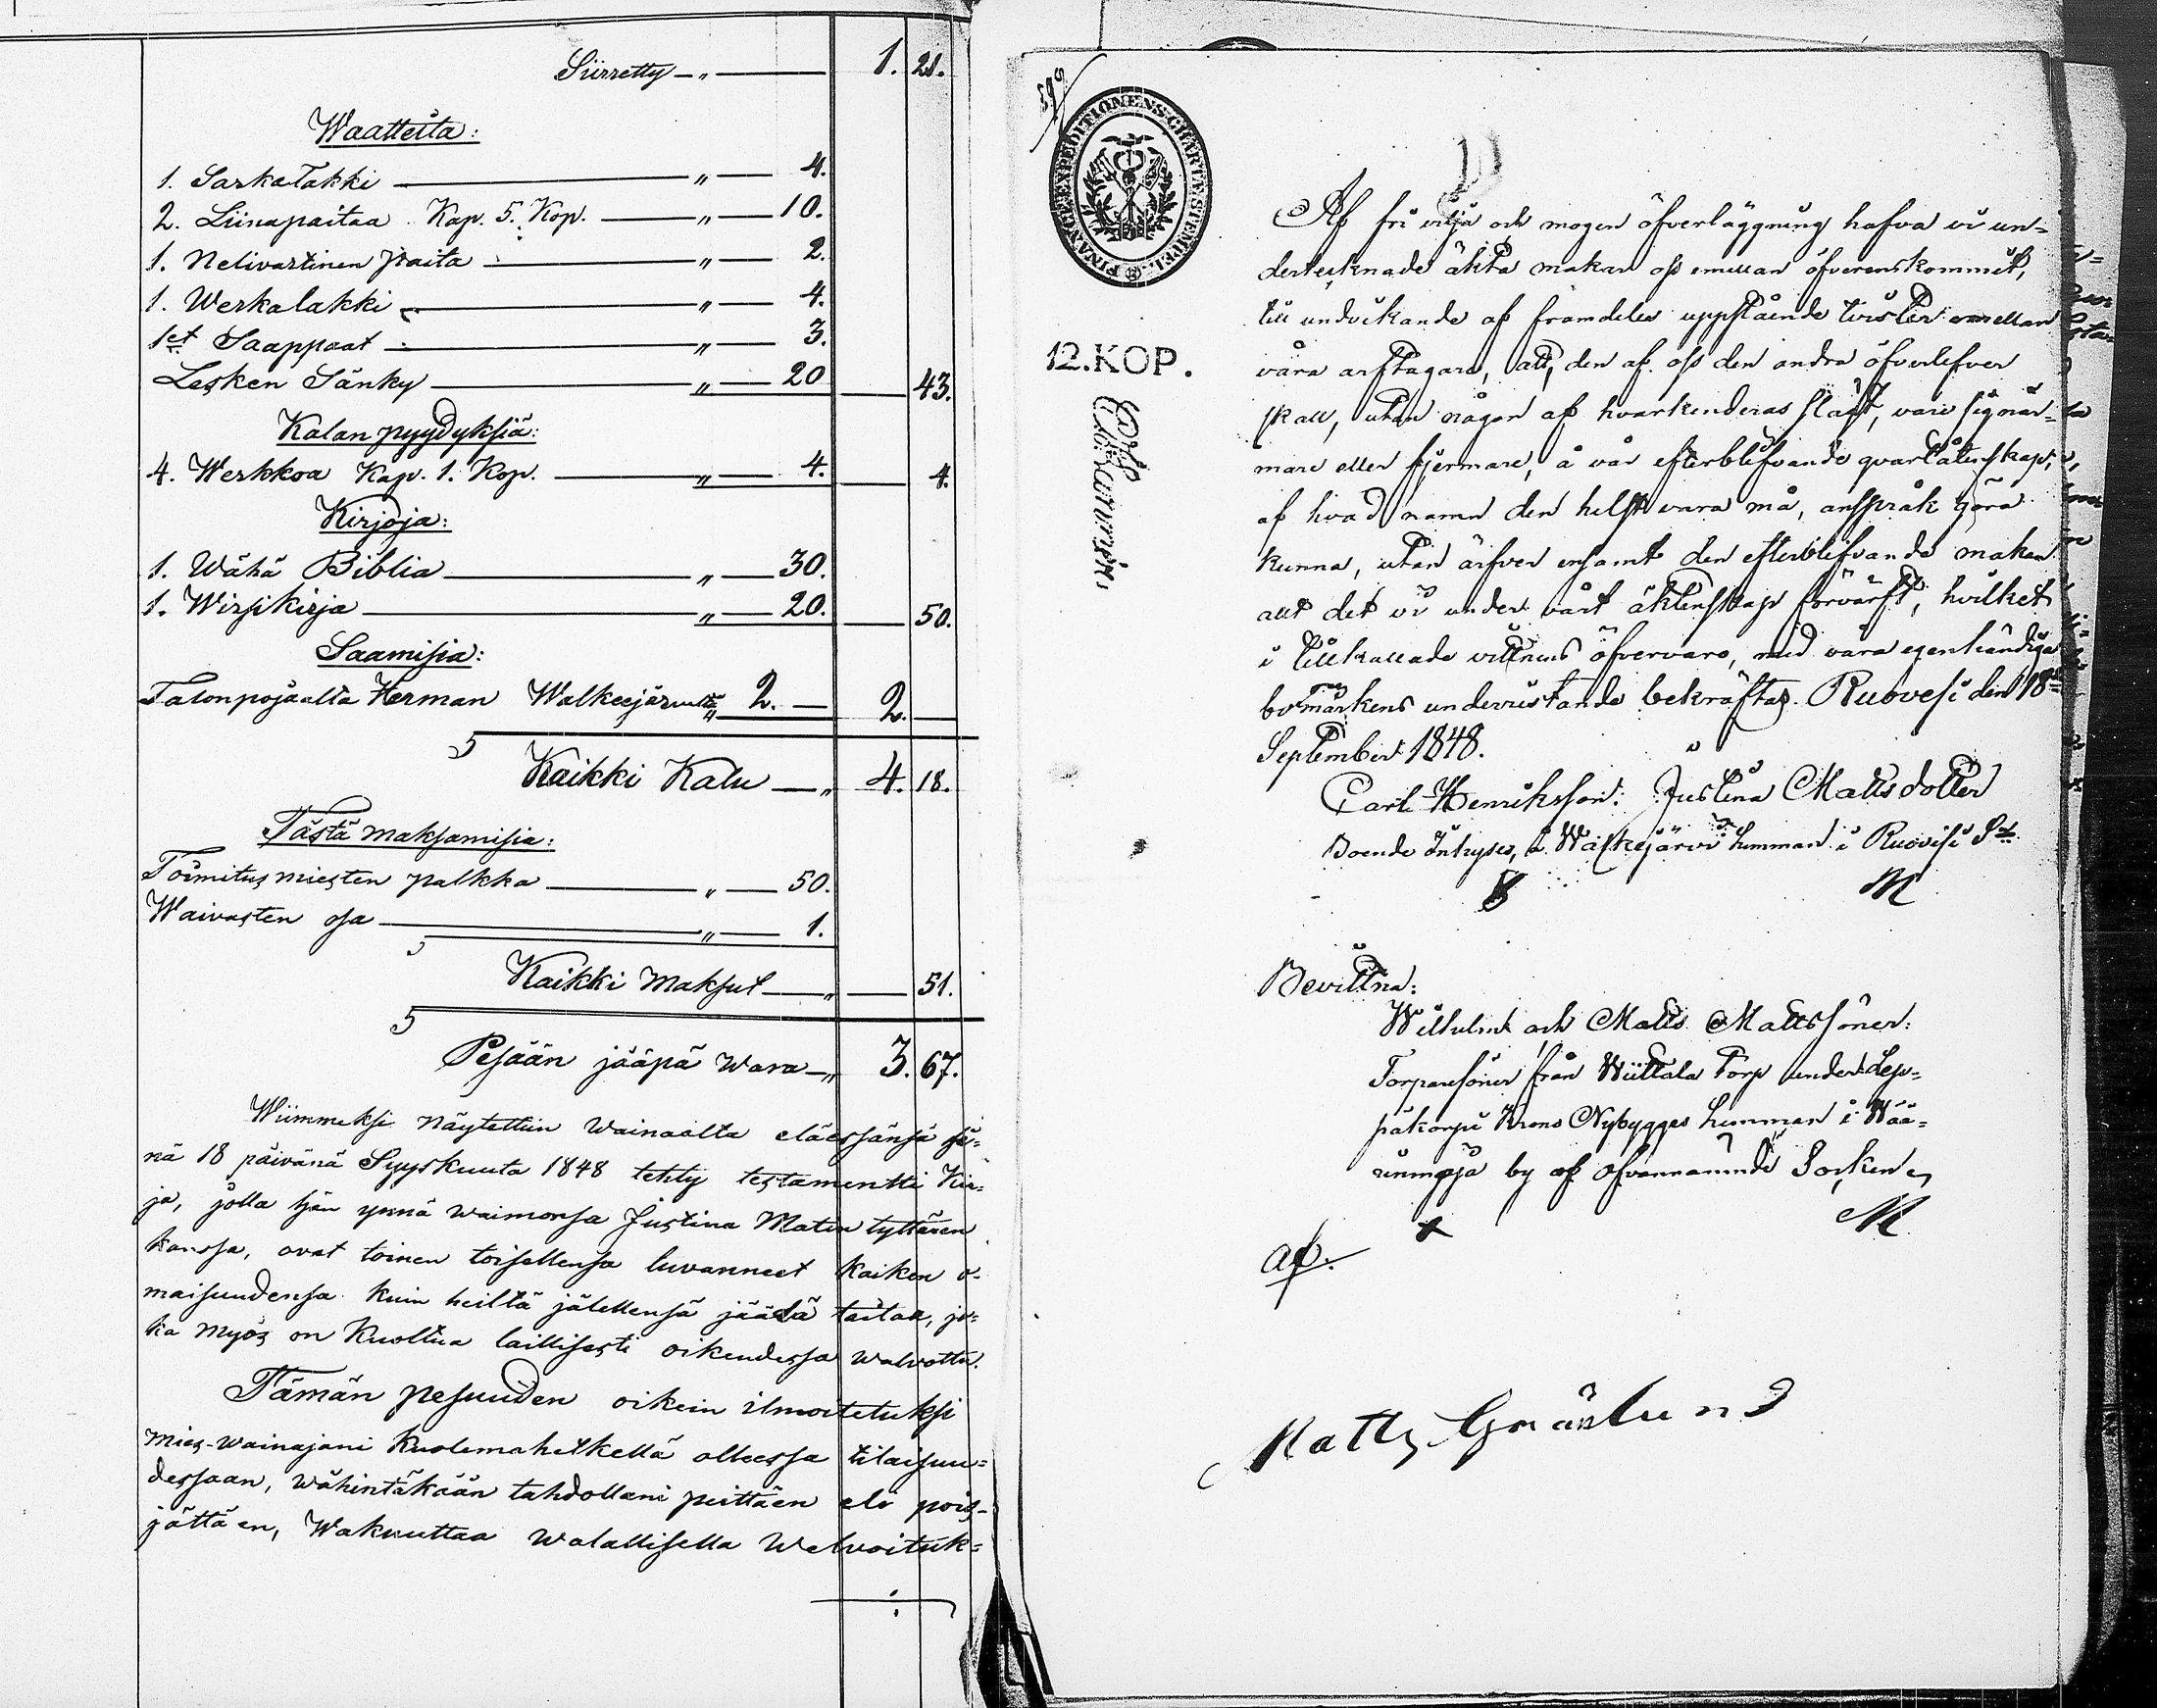 Siirretty — „ — 1. 21.
Waatteita:
1. Sarkatakki — „ — 4.
2. Liinapaitaa Kap. 5. Kop. — „ — 10.
1. Nelivartinen paita — „ — 2.
1. Werkalakki — „ — 4.
1et Saappaat — „ — 3.
Lesken Sänky — „ — 20 — 43.
Kalan pyydyksiä:
4. Werkkoa Kap. 1. Kop. — „ — 4. — 4.
Kirjoja:
1. Wähä Biblia — „ — 30.
1. Wirsikirja — „ — 20. — 50.
Saamisia:
Talonpojaalta Herman Walkeejärveltä „ 2. — 2. —
Kaikki Kalu — „ 4. 18.
Tästä maksamisia:
Toimitus miesten palkka — „ — 50.
Waivasten osa — „ — 1.
Kaikki Maksut — „ — 51.
Pesään jääpä wara — „ 3. 67.
Wiimmeksi näytettiin wainaalta eläessänsä si-
nä 18 päivänä Syyskuuta 1848 tehty testamentti Kir-
ja, jolla hjän ynnä waimonsa Justina Matin tyttären
kanssa, ovat toinen toisellensa luvanneet kaiken o-
maisuudensa kuin heiltä jälellensä jäädä taitaa, jo-
ka myös on Kuoltua laillisesti oikeudessa walvottu.
Tämän pesuuden oikein ilmoitetuksi
mies-wainajani Kuolemahetkellä olleessa tilaisuu-
dessaan, wähintäkään tahdollani peittäen eli pois-
jättäen, Wakuuttaa walallisella Welvoituk-
FINANCEEXPEDITIONENS CHARTÆ STEMPEL
12. KOP.
Af fri vilja och mogen öfverläggning hafva vi un-
dertecknade äkta makar oss emellan öfverenskommit,
till undvikande af framdeles uppstående tvister emellan
våra arftagare, att, den af oss den andra öfverlefver
skall, utan någon af hvarkenderas slägt, vare sig när-
mare eller fjermare, å vår efterblifvande qvarlåtenskap,
af hvad namn den helst vara må, anspråk göra
kunna, utan ärfver ensamt den efterblifvande makan
allt det vi under vårt äktenskap förvärft, hvilket
i tillkallade vittnens öfvervaro, med våra egenhändiga
bomärkens underristande bekräftas. Ruovesi den 18de
September 1848.
Carl Henriksson. Justina Matts dotter
Boende Inhyses, å Walkejärvi hemman i Ruovesi Sn
M
Bevittna:
Wilhelm och Matts Mattssöner.
Torparesöner från Wiittala Torp under Lep-
päkorpi Krono Nybygges hemman i Wää-
rinmaja by af ofvannämnde Socken
x M
Matts Gräslund